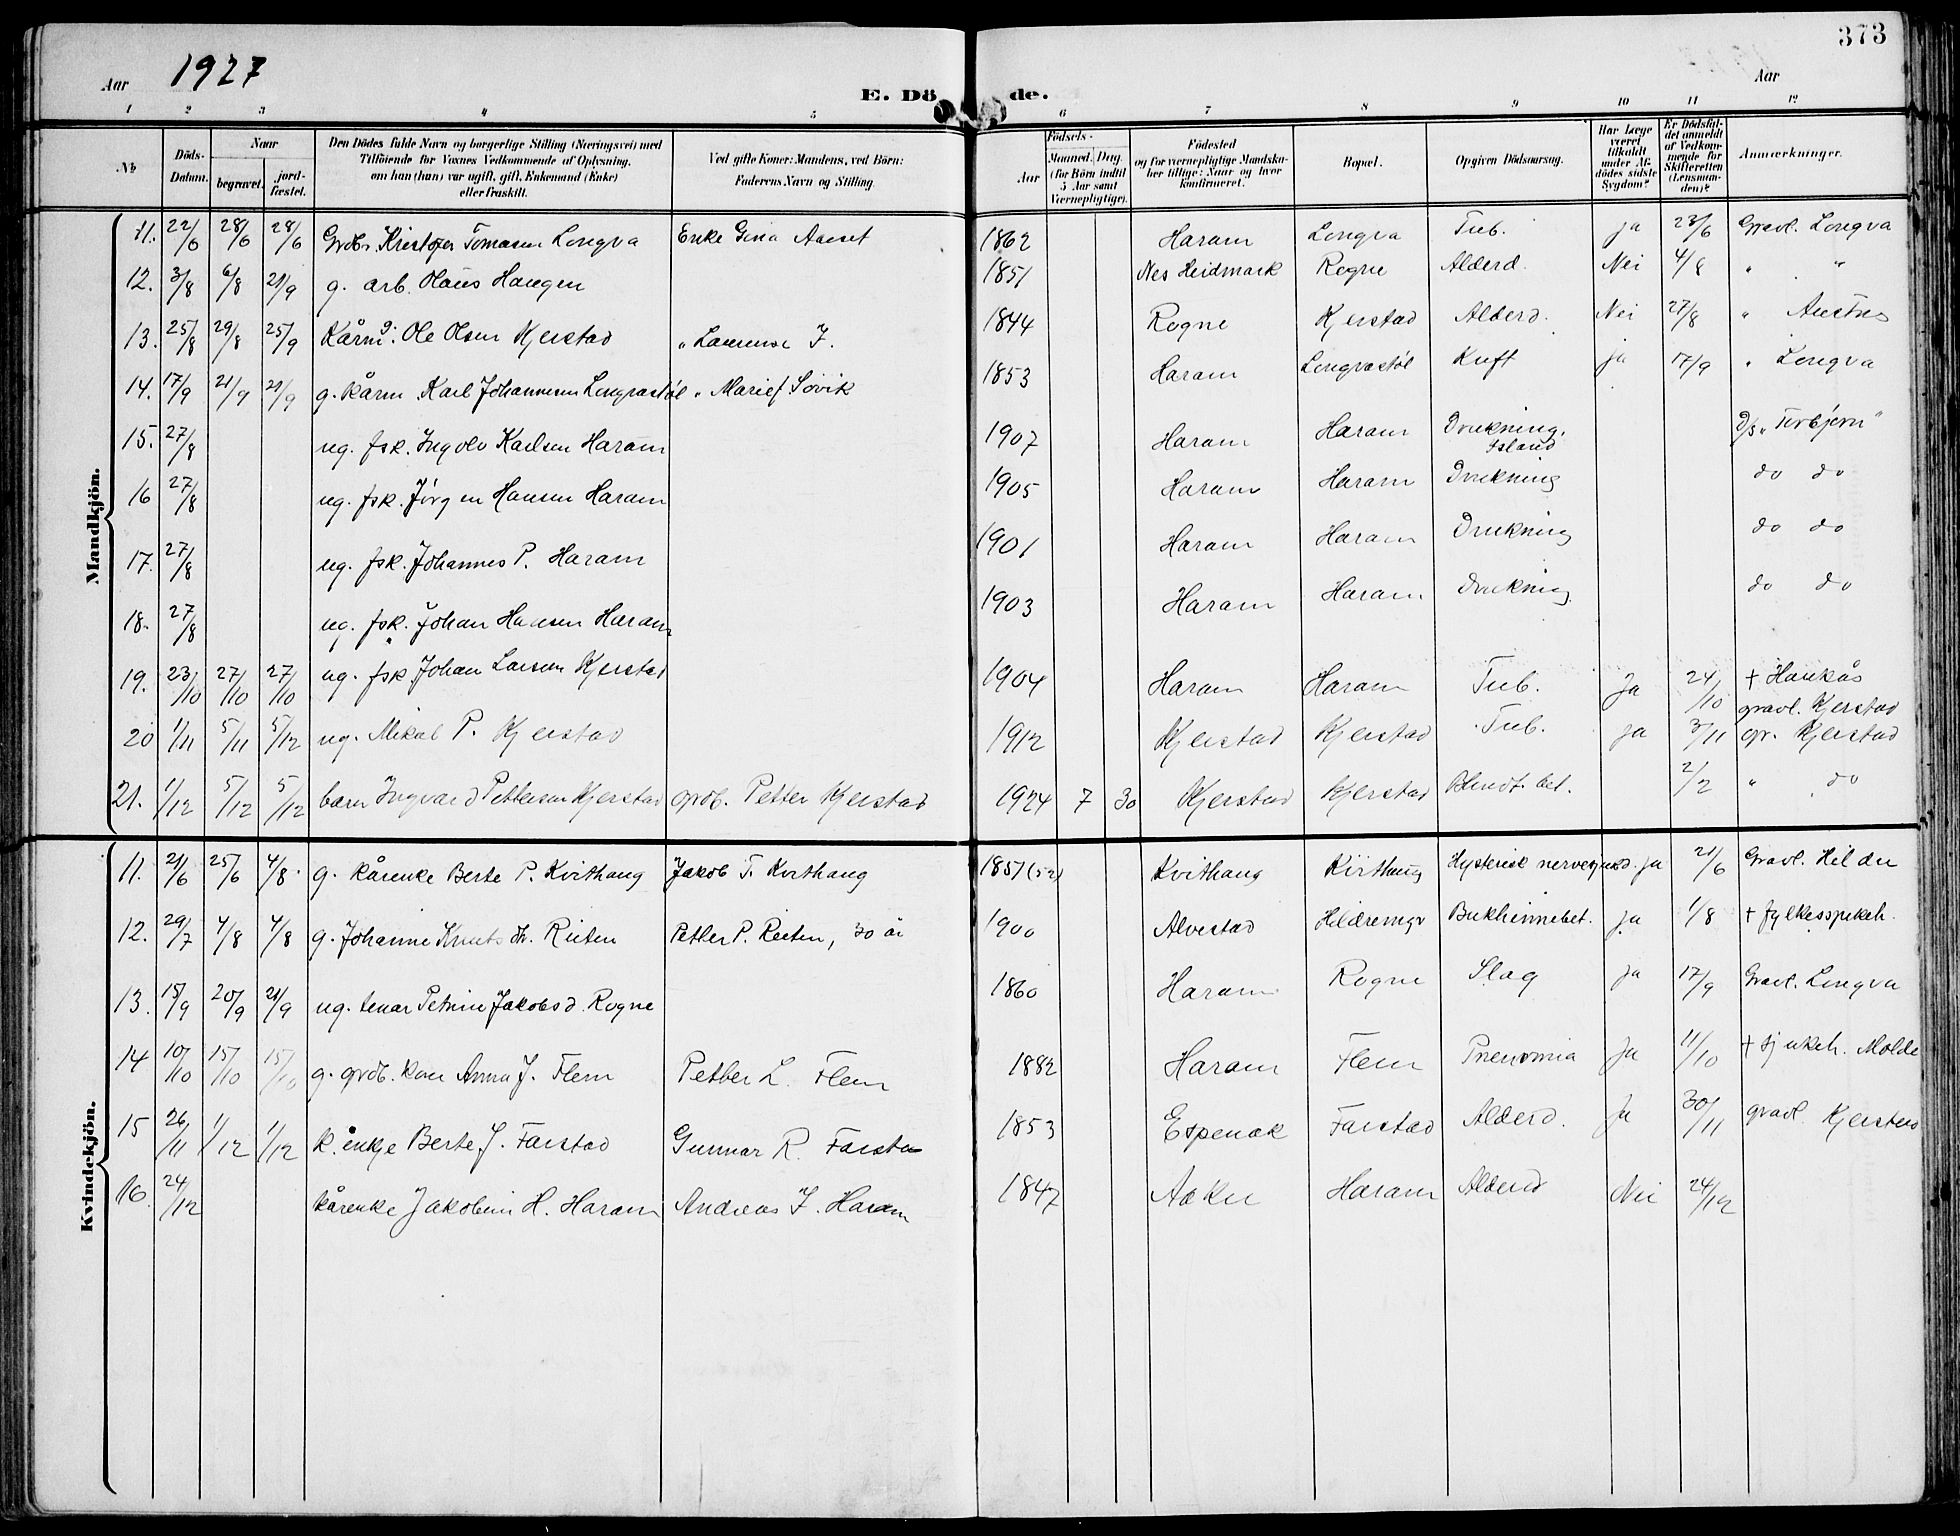 373
Aar 1927
E. Döde.
Aar
1 2 3 4 5 6 7 8 9 10 11 12
No
Döds-Datum.
Naar
begravet.
jordfæstet.
Den Dödes fulde Navn og borgerlige Stilling (Næringsvei) med Tilföiende for Voxnes Vedkommende af Oplysning, om han (hun) var ugift, gift, Enkemand (Enke) eller fraskilt.
Ved gifte Koner: Mandens, ved Börn: Faderens Navn og Stilling.
Födsels-
Aar
Maaned. Dag. (for Börn indtil 5 Aar samt Værnepligtige).
Födested og for værnepligtige Mandskaber tillige: Naar og hvor konfirmeret.
Bopæl.
Opgiven Dödsaarsag.
Har Læge været tilkaldt under Afdödes sidste Sygdom?
Er Dödsfaldet anmeldt af Vedkommende for Skifteretten (Lensmanden)?
Anmærkninger.
Mandkjön.
11. 22/6 28/6 28/6 Grdbr. Kristofer Tomasen Longva Enke Gina Aaset 1862 Haram Longva Tub. ja 23/6 Gravl. Longva
12. 3/8 6/8 21/9 g. arb. Olaus Haugen 1851 Nes Heidmark Rogne Alderd. Nei 4/8 " "
13. 25/8 29/8 25/9 Kårm. g. Ole Olsen Kjerstad " Laurense J. 1844 Rogne Kjerstad Alderd. Nei 27/8 " Austnes
14. 17/9 21/9 21/9 g. kårm. Karl Johannesen Longvastøl " Marie J. Søvik 1853 Haram Longvastøl Kreft ja 17/9 " Longva
15. 27/8 ug. fsk. Ingolv Karlsen Haram 1907 Haram Haram Drukning, Island D/s "Torbjørn"
16 27/8 ug. fsk. Jørgen Hansen Haram 1905 Haram Haram Drukning do do
17. 27/8 ug. fsk. Johannes P. Haram 1901 Haram Haram Drukning do do
18. 27/8 ug. fsk. Johan Hansen Haram 1903 Haram Haram Drukning do do
19. 23/10 27/10 27/10 ug. fsk Johan Larsen Kjerstad 1904 Haram Haram Tub. Ja 24/10 + Haukås gravl. Kjerstad
20 1/11 5/11 5/12 ug. Mikal P. Kjerstad 1912 Kjerstad Kjerstad Tub. ja 3/11 gr. Kjerstad
21. 1/12 5/12 5/12 barn Ingvard Pettersen Kjerstad grdb. Petter Kjerstad 1924 7 30 Kjerstad Kjerstad bet. 2/2 " do
Kvindekjön.
11. 21/6 25/6 4/8. g. kårenke Berte P. Kvithaug Jakob T. Kvithaug 1851 (52) Kvithaug Kvithaug Hysterisk ja 21/6 Gravl. Hildre
12. 29/7 4/8 4/8 g. Johanne Knuts dt. Reiten Petter P. Reiten, 30 år 1900 Alvestad Hildremyr Bukhinnebet. ja 1/8 + fylkessjukeh.
13. 15/9 20/9 21/9 ug. tenar Petrine Jakobsd. Rogne 1860 Haram Rogne Slag ja 17/9 Gravl. Longva
14 10/10 15/10 15/10 g. grdb. kone Anna J. Flem Petter L. Flem 1882 Haram Flem Pneumonia Ja 11/10 + sjukeh. Molde
15 26/11 1/12 1/12 k. enkje Berte J. Farstad Gunnar R. Farstad 1853 Espenak Farstad Alderd. Ja 30/11 gravl. Kjerstad
16. 24/12 kårenke Jakobine H. Haram Andreas J. Haram 1847 Aakre Haram Alderd Nei 24/12